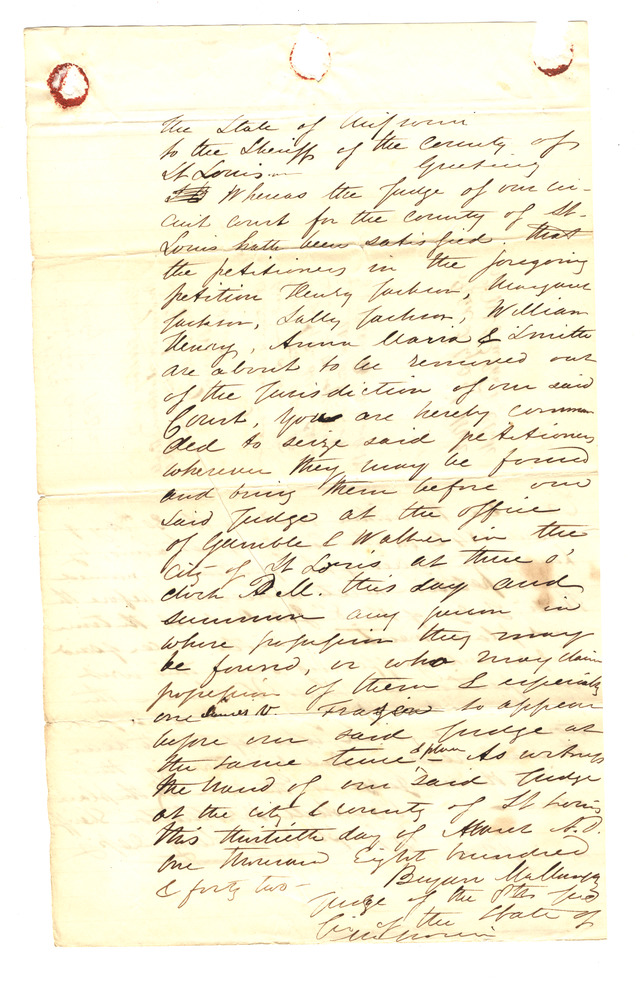 The State of Missouri
to the Sheriff of the County of
St Louis Greeting
Whereas the Judge of our cir-
cuit court for the county of St.
Louis hath been satisfied that
the petitioners in the foregoing
petition Henry Jackson, Margaret
Jackson, Sally Jackson, William
Henry, Anna Maria & Smith
are about to be removed out
of the Jurisdiction of our said
Court, You are hereby comman
ded to seize said petitioners
wherever they may be found
and bring them before our
said Judge at the office
of Gamble & Walker in the
City of St Louis at three o'
clock P.M. this day and
summon any person in
whose possession they may
be found, or who may claim
possession of them & especially
one James V. Frazier to appear
before our said Judge at
the same time & place – As witness
the hand of our said Judge
at the city & county of St Louis
this thirtieth day of A.D.
one thousand Eight hundred
& forty two – Bryan Mullanphy
Judge of the 8th Jud
Cir of the State of
Missouri